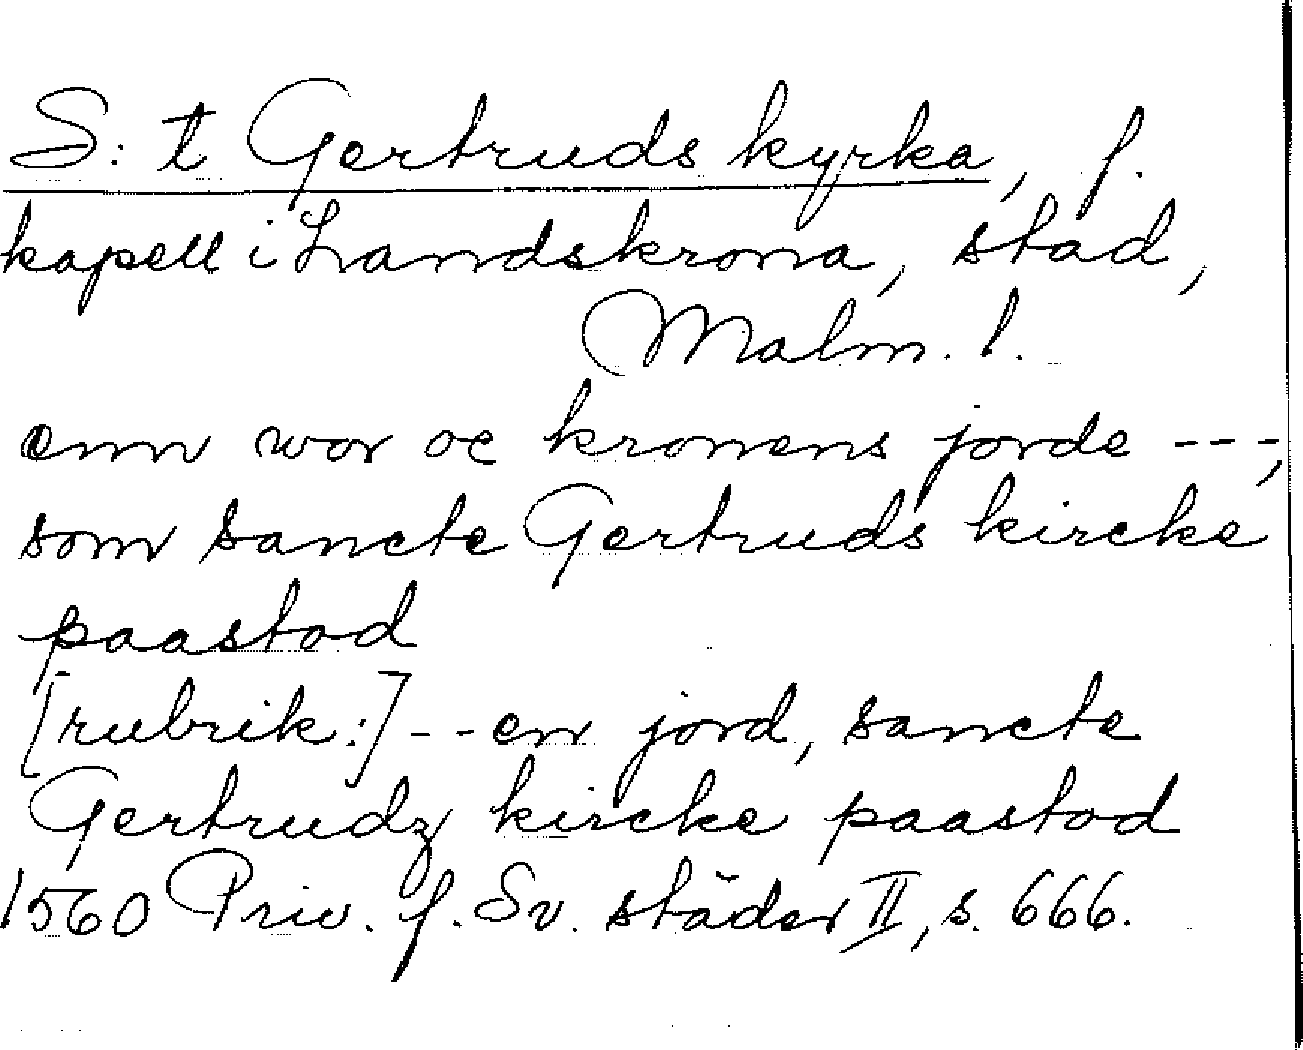 S:t Gertruds kyrka, f.
kapell i Landskrona, stad,
Malm. l.
enn wor oc kronens jorde ---,
som sancte Gertruds kircke
paastod
[rubrik:] -- en jord, sancte
Gertrudz kircke paastod
1560 Priv. f. Sv. städer II, s. 666.